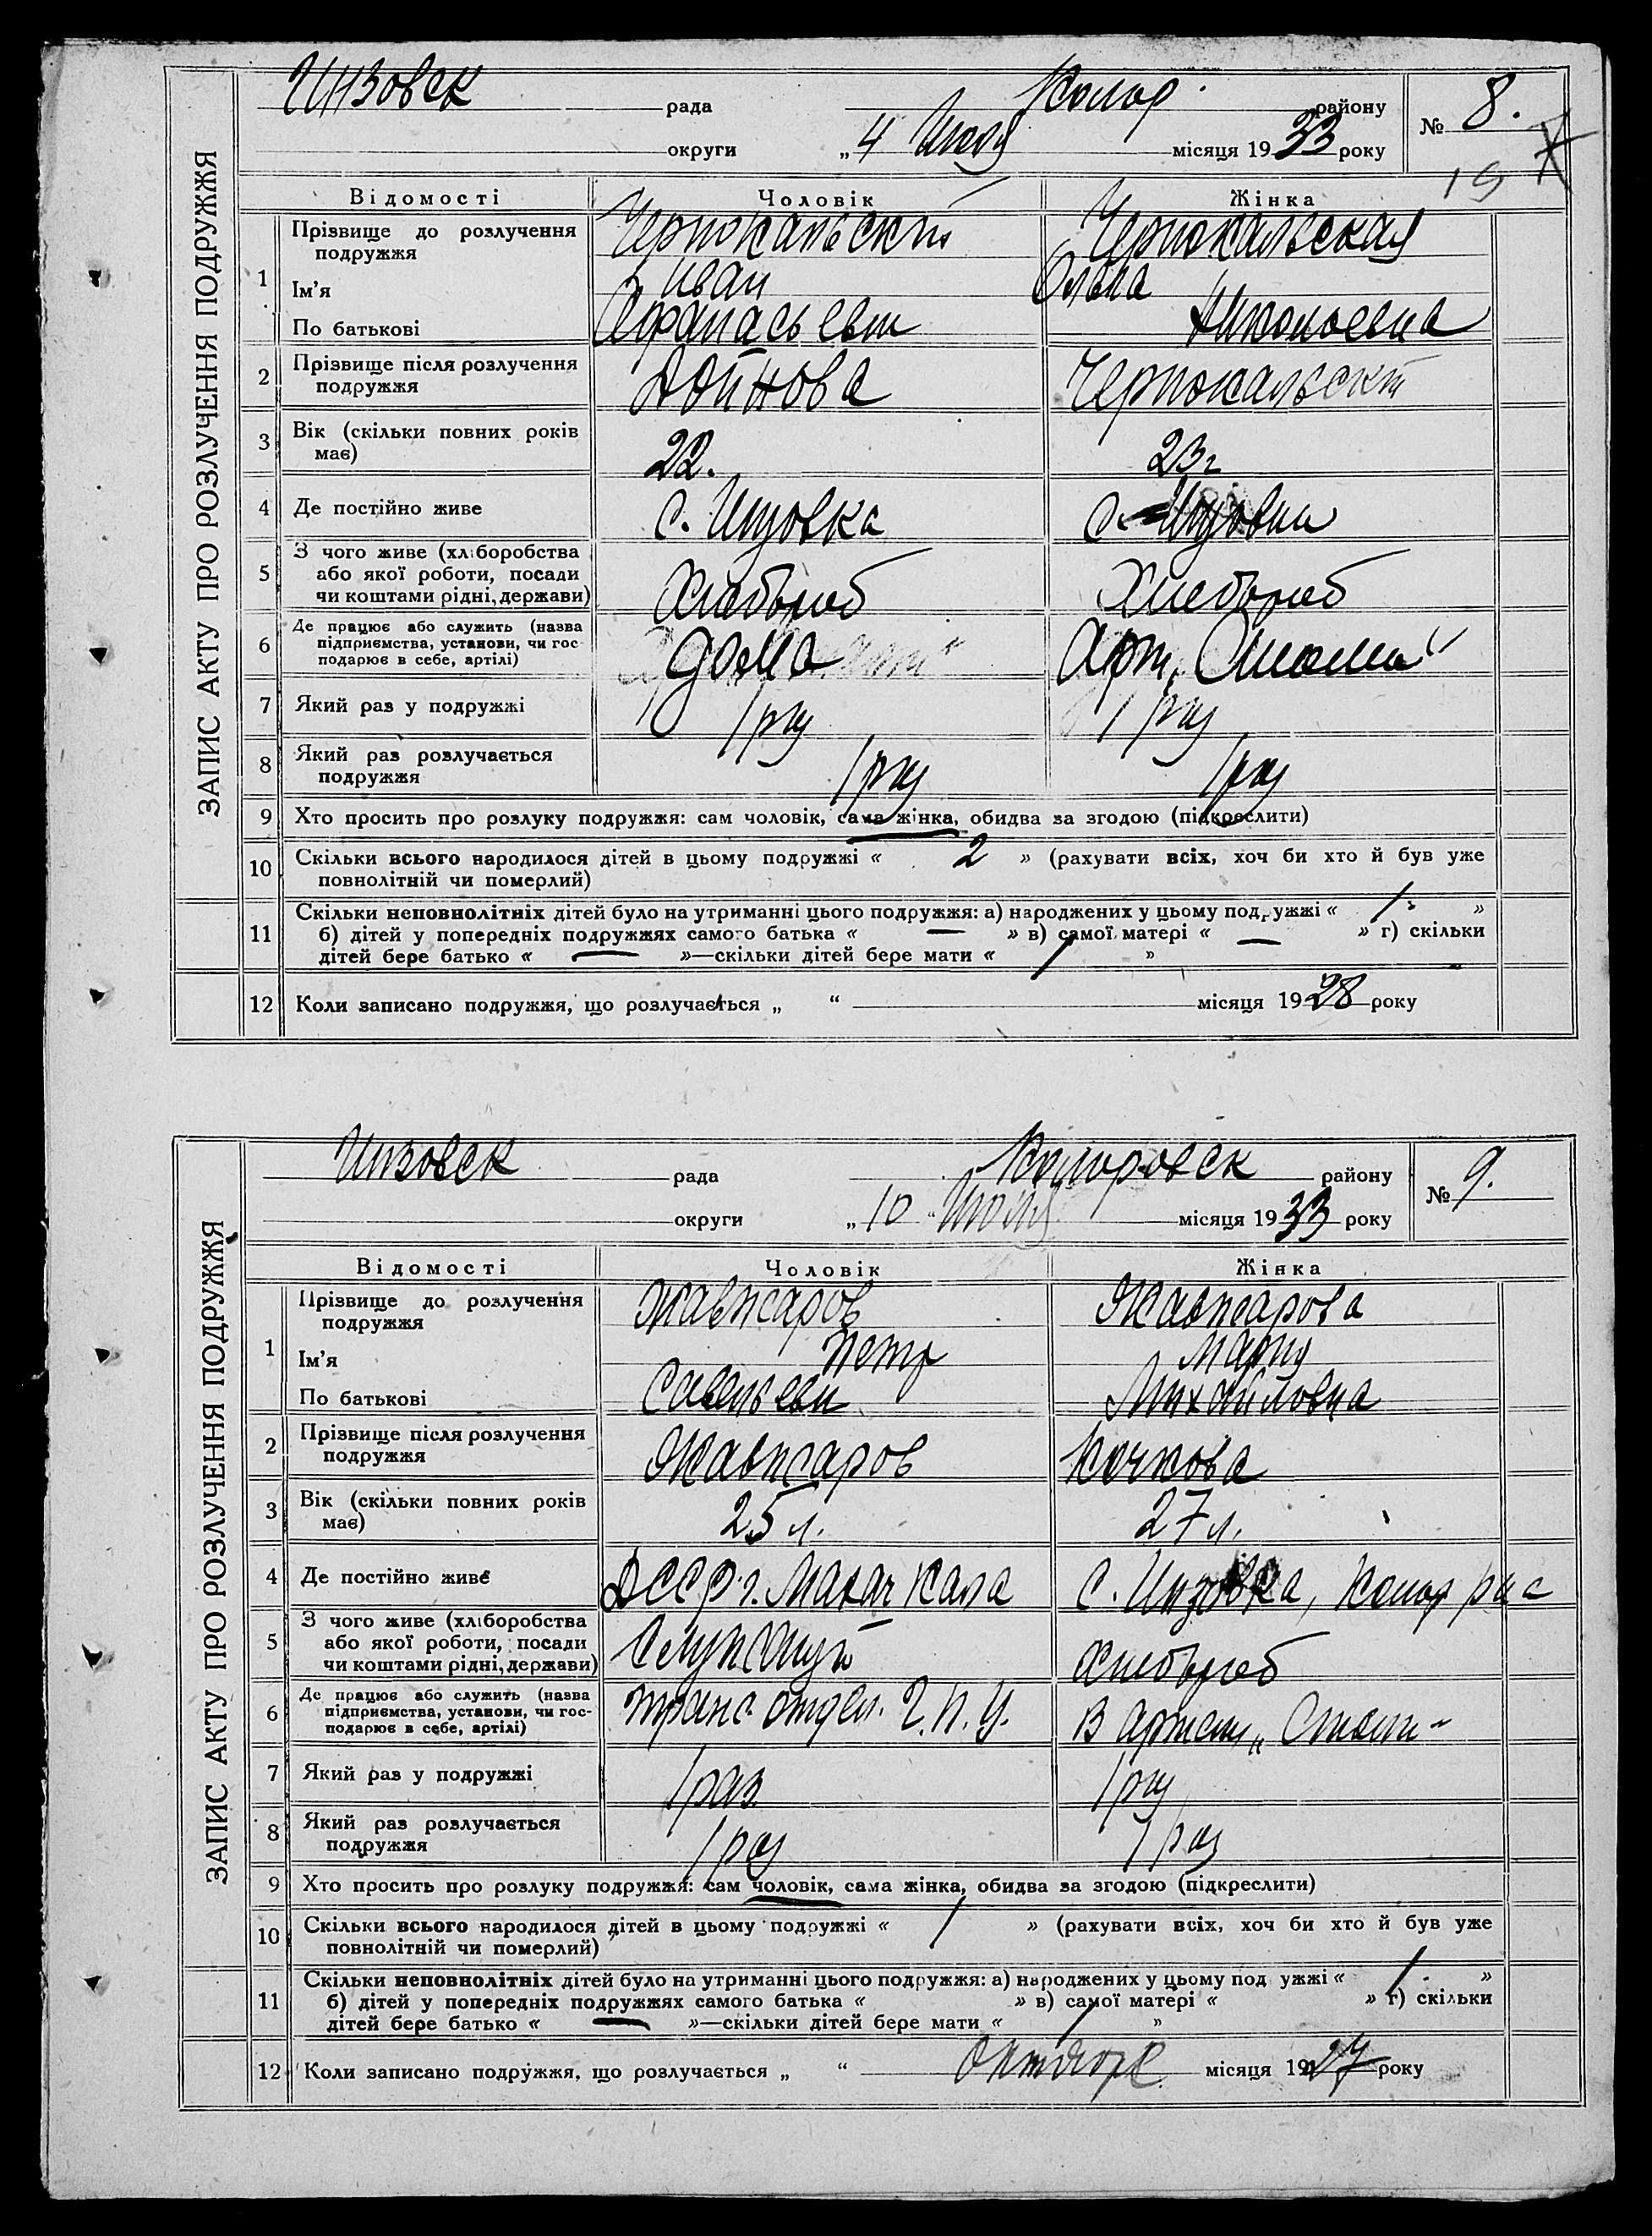 ЗАПИС АКТУ ПРО РОЗЛУЧЕННЯ ПОДРУЖЖЯ
Инзовск рада Комор. району № 8.
округи „4 Июля місяця 1933 року
19
Відомості Чоловік Жінка
1 Прізвище до розлучення подружжя Чернокальский Чернокальская
Ім'я Иван Ольга
По батькові Афанасьевич Николаевна
2 Прізвище після розлучення подружжя
3 Вік (скільки повних років має) 22. 23 г
4 Де постійно живе с. Инзовка с. Инзовка
5 З чого живе (хліборобства або якої роботи, посади чи коштами рідні, держави) Хлебороб Хлебороб
6 Де працює або служить (назва підприємства, установи, чи господарює в себе, артілі) дома Арт.
7 Який раз у подружжі 1 раз 1 раз
8 Який раз розлучається подружжя 1 раз 1 раз
9 Хто просить про розлуку подружжя: сам чоловік, сама жінка, обидва за згодою (підкреслити)
10 Скільки всього народилося дітей в цьому подружжі « 2 » (рахувати всіх, хоч би хто й був уже
повнолітній чи померлий)
11 Скільки неповнолітніх дітей було на утриманні цього подружжя: а) народжених у цьому подружжі « 1 »
б) дітей у попередніх подружжях самого батька « — » в) самої матері « — » г) скільки
дітей бере батько « — »—скільки дітей бере мати « 1 »
12 Коли записано подружжя, що розлучається „ “ місяця 1928 року
ЗАПИС АКТУ ПРО РОЗЛУЧЕННЯ ПОДРУЖЖЯ
Инзовск рада району № 9.
округи „10 Июля місяця 1933 року
Відомості Чоловік Жінка
1 Прізвище до розлучення подружжя Жавжаров Жавжарова
Ім'я Петр Мария
По батькові Савельевич Михайловна
2 Прізвище після розлучення подружжя Жавжаров Качкова
3 Вік (скільки повних років має) 25 л. 27 л.
4 Де постійно живе ДССР г. Махач Кала с. Инзовка,
5 З чого живе (хліборобства або якої роботи, посади чи коштами рідні, держави) Служащий Хлебороб
6 Де працює або служить (назва підприємства, установи, чи господарює в себе, артілі) транс. отдел. Г.П.У. В артели
7 Який раз у подружжі 1 раз 1 раз
8 Який раз розлучається подружжя 1 раз 1 раз
9 Хто просить про розлуку подружжя: сам чоловік, сама жінка, обидва за згодою (підкреслити)
10 Скільки всього народилося дітей в цьому подружжі « 1 » (рахувати всіх, хоч би хто й був уже
повнолітній чи померлий)
11 Скільки неповнолітніх дітей було на утриманні цього подружжя: а) народжених у цьому подружжі « 1 »
б) дітей у попередніх подружжях самого батька « » в) самої матері « » г) скільки
дітей бере батько « — »—скільки дітей бере мати « 1 »
12 Коли записано подружжя, що розлучається „ “ Октябре місяця 1927 року